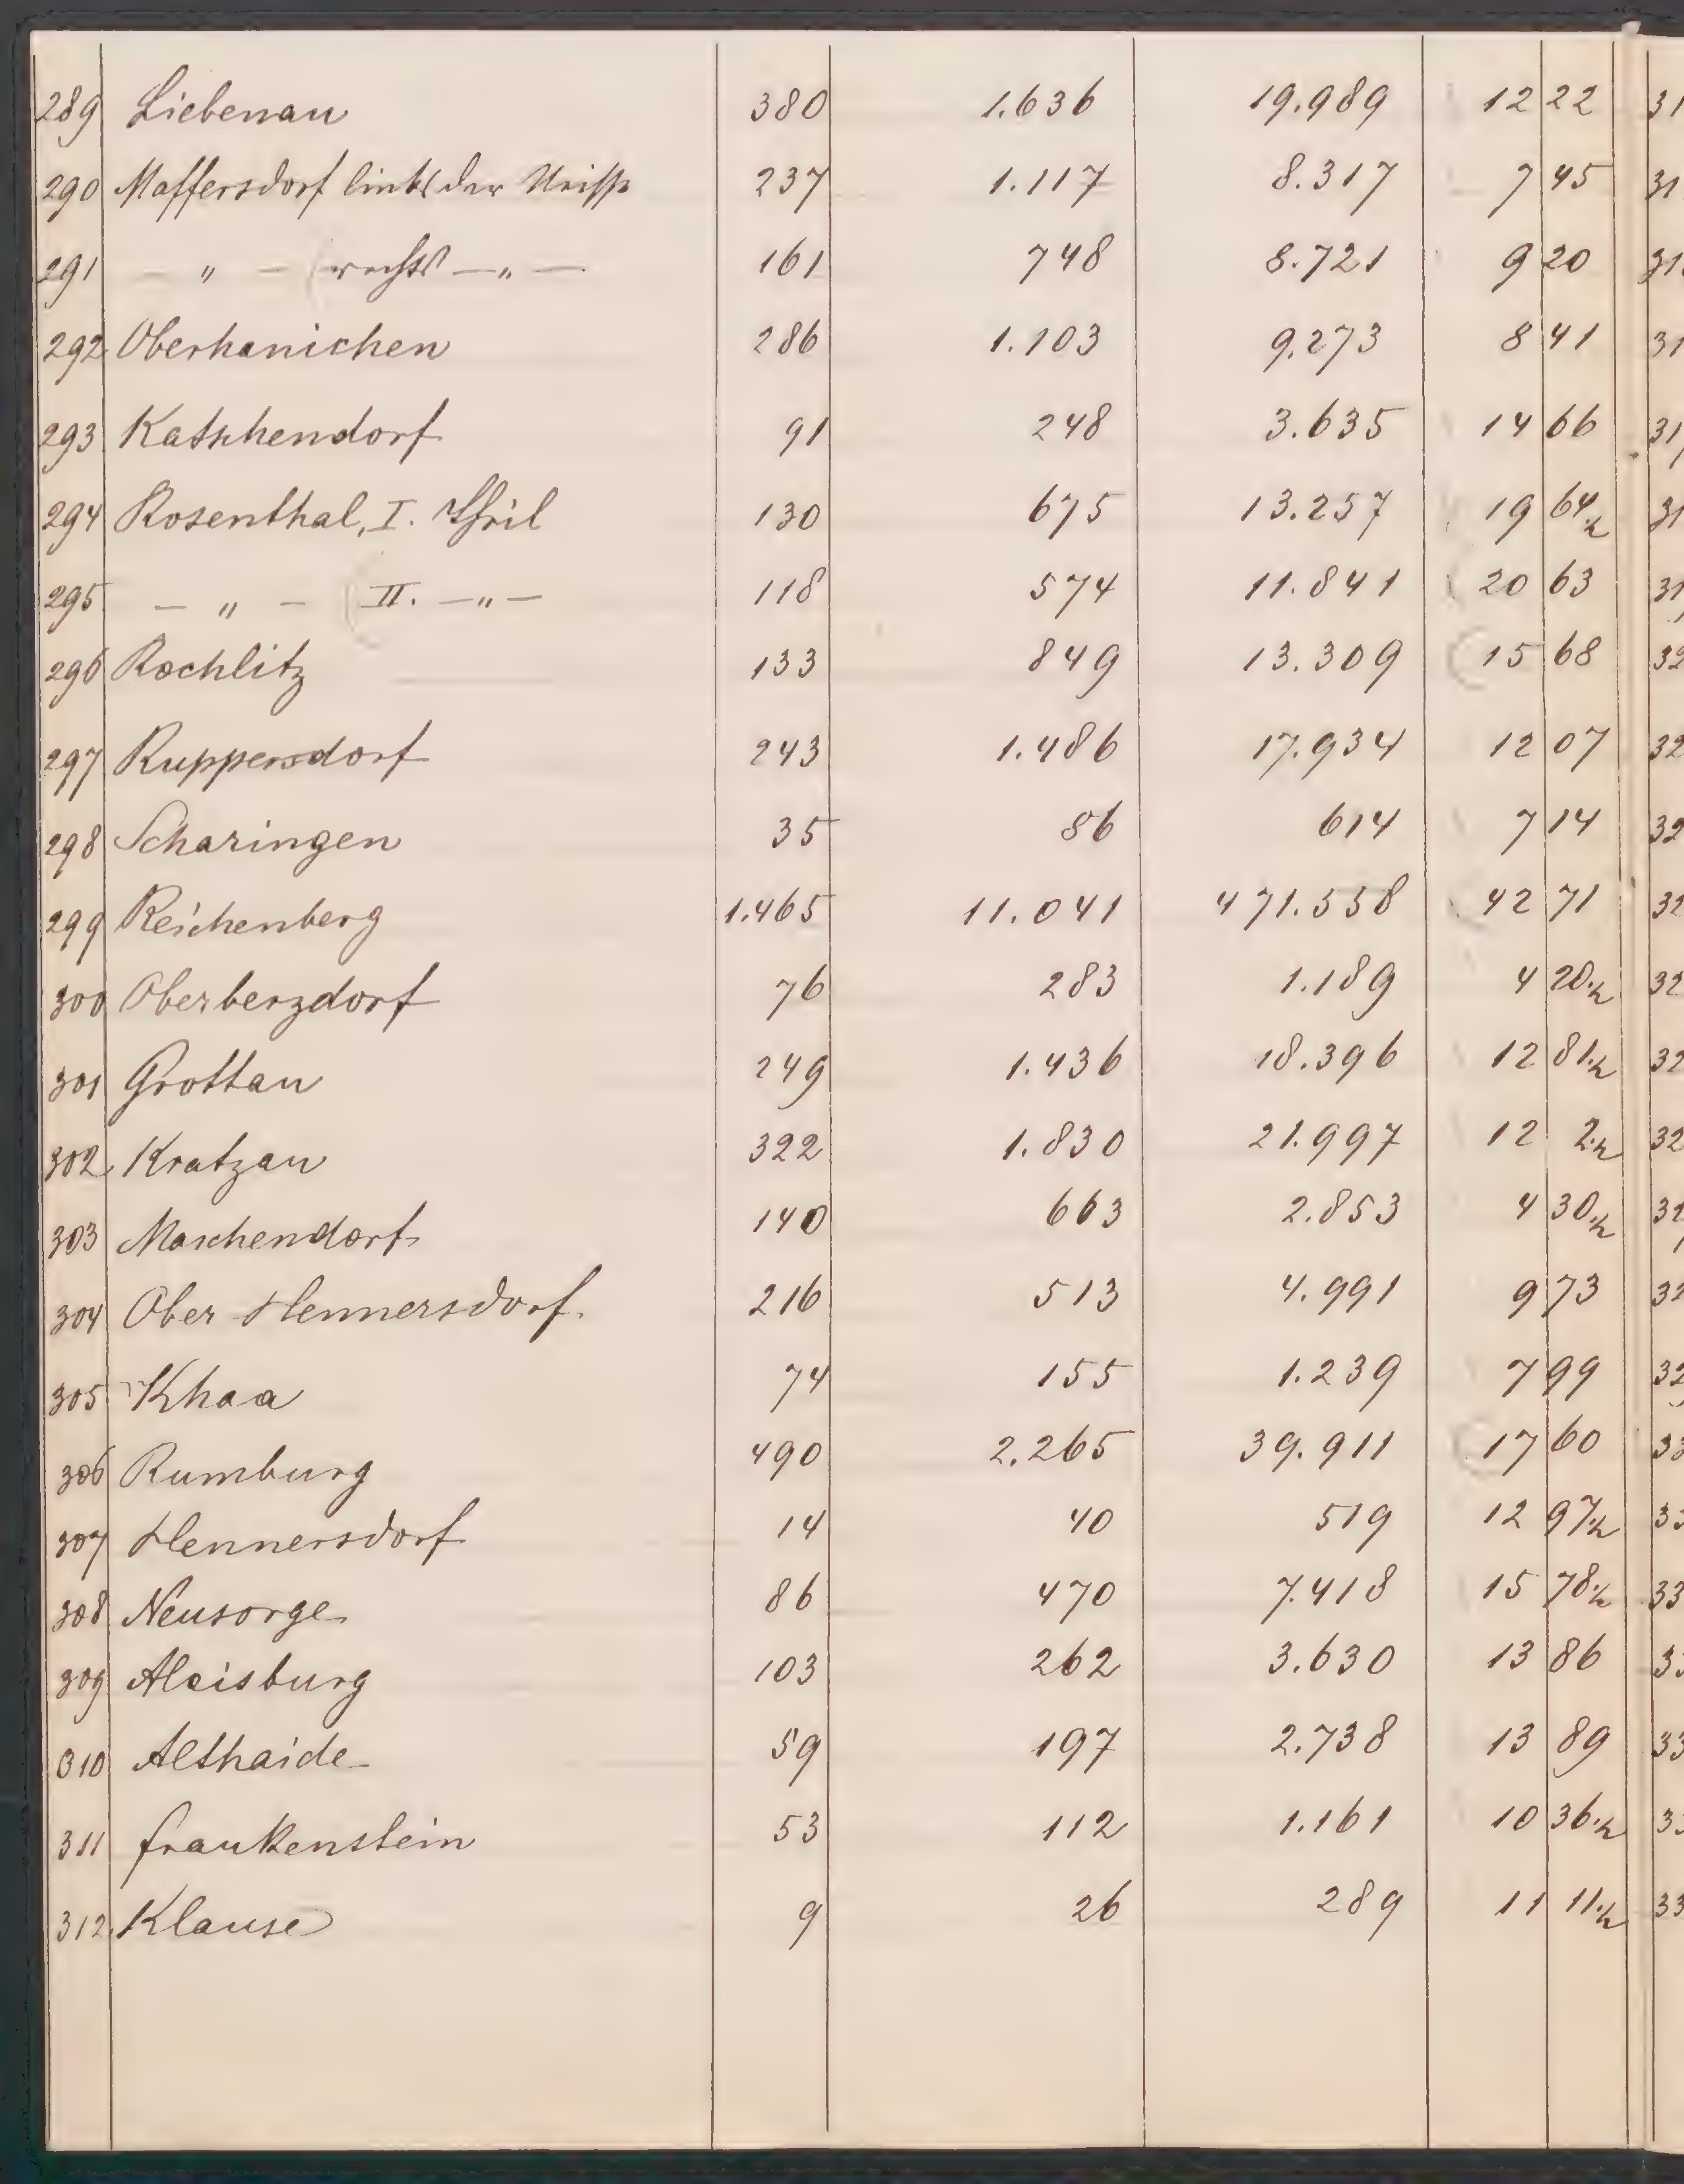 289 Liebenau 380 1.636 19.989 12 22 31
290 Maffersdorf links der Neisse 237 1.117 8.317 7 45 31
291 — " — rechts — " — 161 748 8.721 9 20 31
292 Oberhanichen 286 1.103 9.273 8 41 31
293 Katschendorf 91 248 3.635 14 66 31
294 Rosenthal, I. Theil 130 675 13.257 19 64.h 31
295 — " — II. — " — 118 574 11.841 20 63 31
296 Rochlitz 133 849 13.309 15 68 32
297 Ruppersdorf 243 1.486 17.934 12 07 32
298 Scharingen 35 86 614 7 14 32
299 Reichenberg 1.465 11.041 471.558 42 71 32
300 Oberberzdorf 76 283 1.189 4 20.h 32
301 Grottau 249 1.436 18.396 12 81.h 32
302 Kratzau 322 1.830 21.997 12 2.h 32
303 Maschendorf 140 663 2.853 4 30.h 32
304 Ober Hennersdorf 216 513 4.991 9 73 32
305 Khaa 74 155 1.239 7 99 32
306 Rumburg 490 2.265 39.911 17 60 33
307 Hennersdorf 14 40 519 12 97.h 33
308 Neusorge 86 470 7.418 15 78.h 33
309 Aloisburg 103 262 3.630 13 86 33
310 Althaide 59 197 2.738 13 89 33
311 Frankenstein 53 112 1.161 10 36.h 33
312 Klause 9 26 289 11 11.h 33